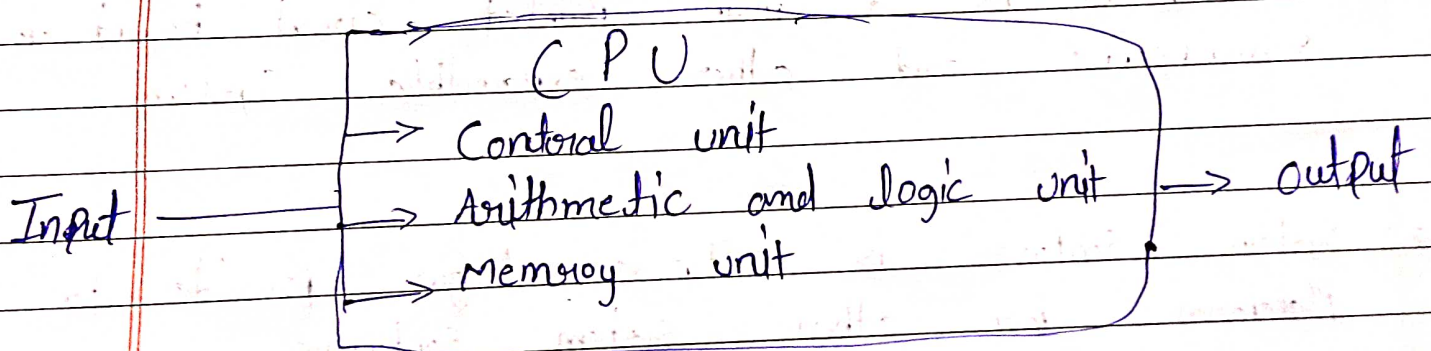 CPU
Contoral unit
Input Arithmetic and logic unit output
Memroy unit